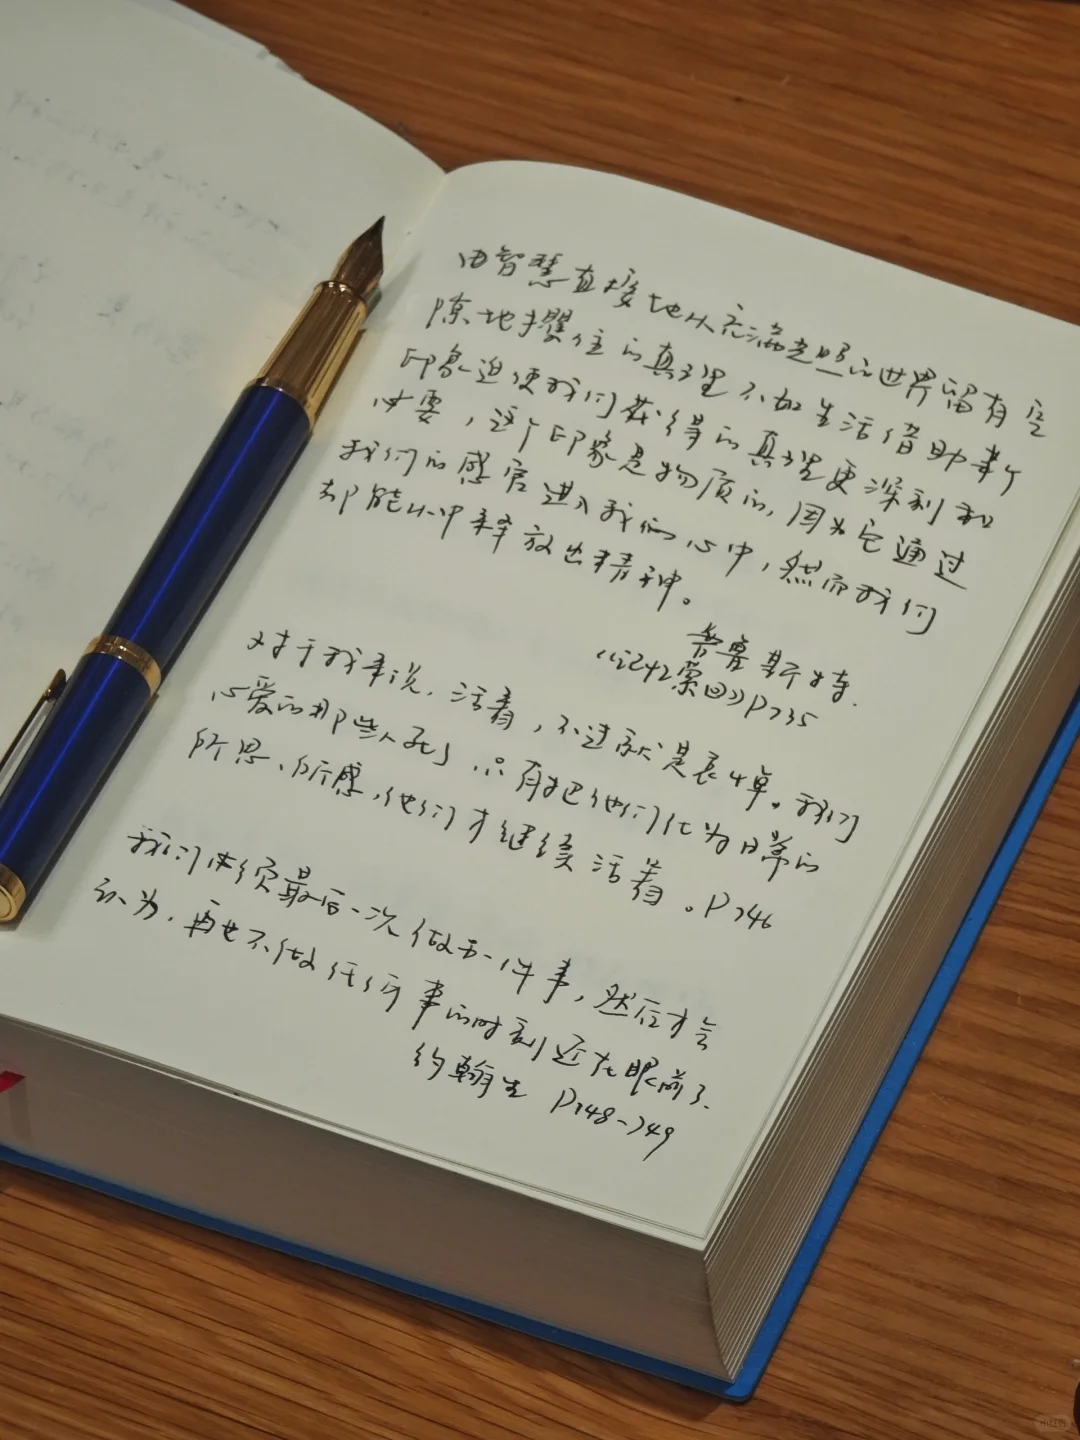 由智慧直接地从充满光照的世界留有空
隙地攫住的真理不如生活借助某个
印象迫使我们获得的真理更深刻和
必要，这个印象是物质的，因为它通过
我们的感官进入我们心中，然而我们
却能从中释放出精神。
普鲁斯特
P235
对于我来说，活着，不过就是哀悼。我们
心爱的那些人死了，只有把他们化为日常的
所思、所感，他们才继续活着。P246
我们必须最后一次做另一件事，然后才会
认为，再也不做任何事的时刻还在眼前了.
约翰生 P248-249
小红书